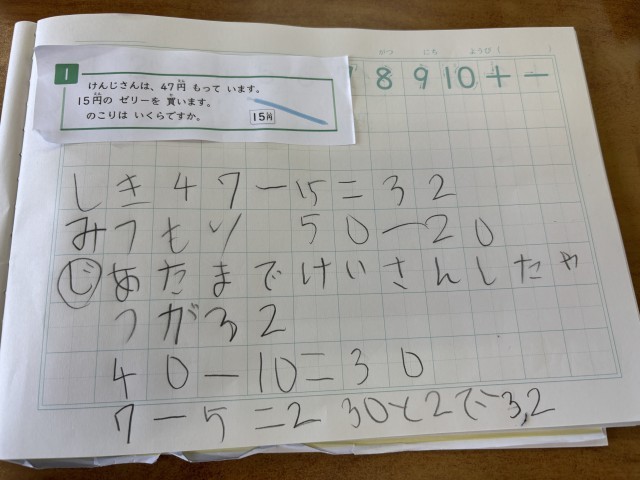 がつ にち ようび( )
8 9 10 + −
1
けんじさんは、47円 もって います。
15円の ゼリーを 買います。
のこりは いくらですか。
15円
しき 47−15=32
みつもり 50−20
じ あたまでけいさんしたや
つがる2
40−10=30
7−5=2 30と2で3,2